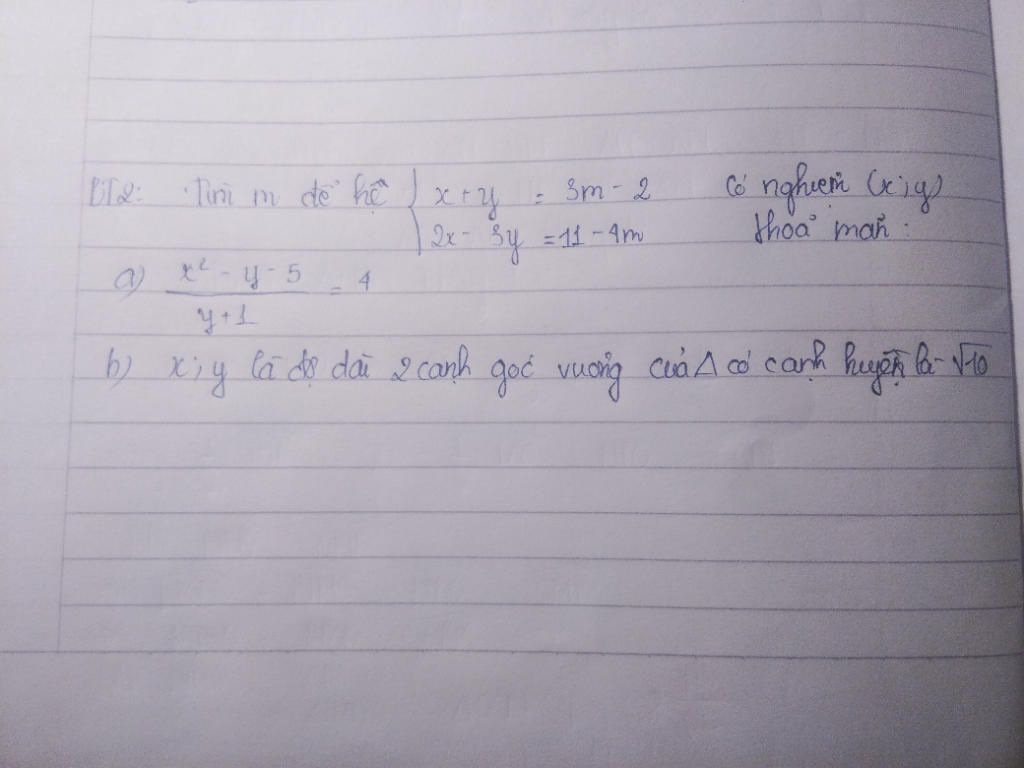 BT2: Tìm m để hệ { x + y = 3m - 2 có nghiệm (x; y)
2x - 3y = 11 - 4m thoả mãn:
a) (x² - y - 5)/(y + 1) = 4
b) x; y là độ dài 2 cạnh góc vuông của Δ có cạnh huyền là √10